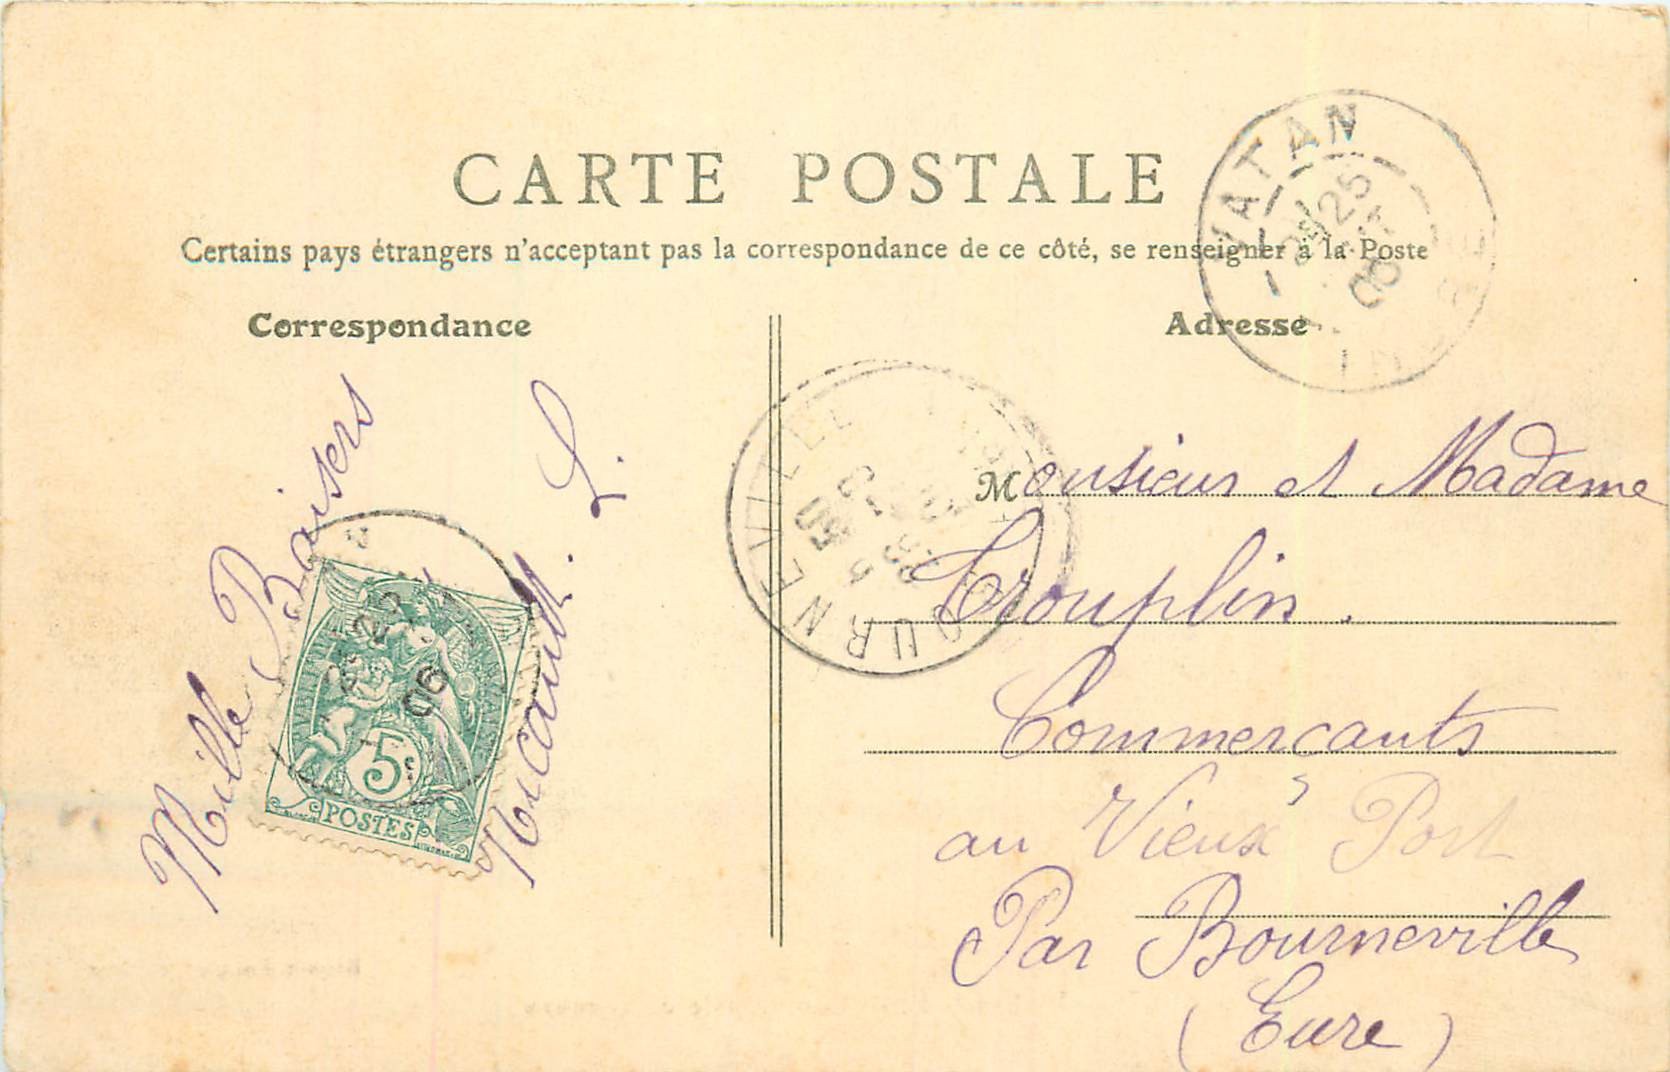 CARTE POSTALE
Certains pays étrangers n'acceptant pas la correspondance de ce côté, se renseigner à la Poste
Correspondance
Adresse
Mille Baisers
L.
Monsieur et Madame
Trouplin.
Commerçants
au Vieux Port
Par Bourneville
(Eure)
VATAN
25
06
INDRE
BOURNEVILLE
06
5c
POSTES